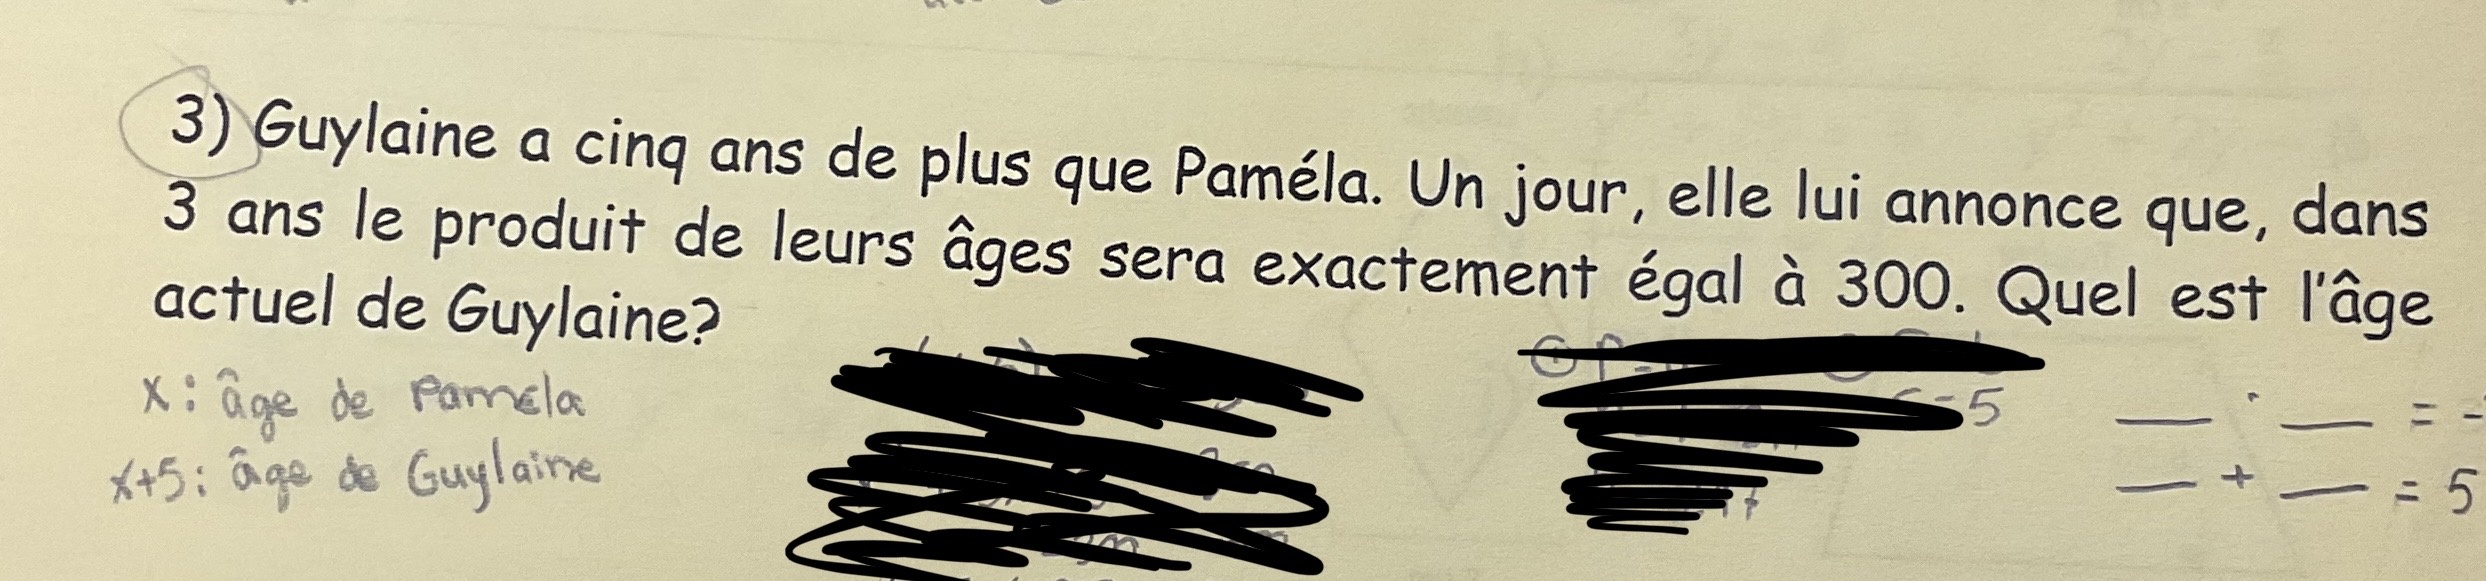 3) Guylaine a cinq ans de plus que Paméla. Un jour, elle lui annonce que, dans
3 ans le produit de leurs âges sera exactement égal à 300. Quel est l'âge
actuel de Guylaine?
x : âge de Pamela
x+5 : âge de Guylaine
-5
__ · __ = -
__ + __ = 5